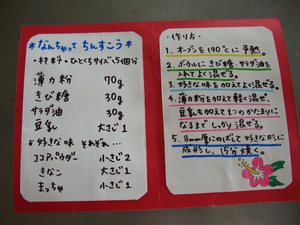 *なんちゃって ちんすこう*
・材料・ひとくちサイズ15個分
薄力粉 70g
きび糖 30g
サラダ油 30g
豆乳 大さじ1
♪好きな味 それぞれ…
ココアパウダー 小さじ2
きなこ 大さじ1
まっちゃ 小さじ1
・作り方・
1.オーブンを190℃に予熱。
2.ボウルに きび糖・サラダ油を
入れてよく混ぜる。
3.好きな味を加えてよく混ぜる。
4.薄力粉を加えて軽く混ぜ、
豆乳も加えて1つのかたまりに
なるまでしっかり混ぜる。
5.8mm厚にのばして好きな形に
成形し、15分焼く。